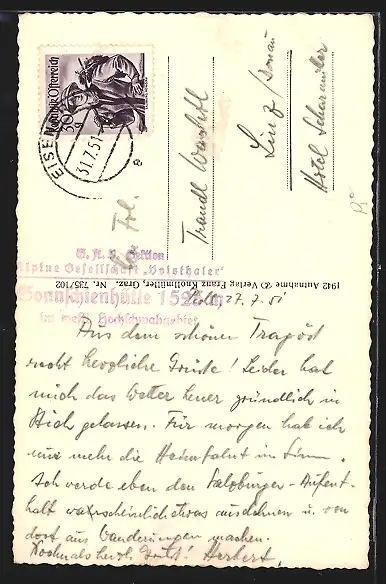 Republik Österreich
30 g
EISEN
31.7.51
e
An Frl.
Traudl
Linz / Donau
Hotel Scharmüller
Ö. A. V. Sektion
Alpine Gesellschaft „Voisthaler"
Sonnschienhütte 1523 m
im westl. Hochschwabgebiet
1942 Aufnahme & Verlag Franz Knollmüller, Graz. Nr. 7357/102
27. 7. 51
Aus dem schönen Tragöß
recht herzliche Grüße! Leider hat
mich das Wetter heuer gründlich im
Stich gelassen. Für morgen hab ich
nur mehr die Heimfahrt im Sinn.
Ich werde eben den Salzburger-Aufent-
halt wahrscheinlich etwas ausdehnen u. von
dort aus Wanderungen machen.
Nochmals herzl. Grüße! Herbert.